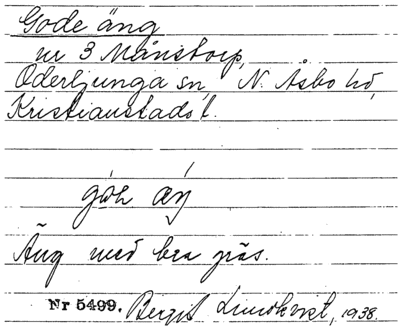 Gode äng
nr 3 Månstorp,
Oderljunga sn, N. Åsbo hd,
Kristianstads l.
äŋ
Äng med bra gräs.
Nr 5499. Bergit Lundkvist, 1938.